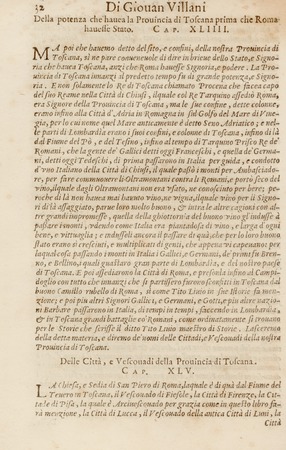 32 Di Giouan Villani
Della potenza che hauea la Prouincia di Toscana prima che Roma
hauesse Stato. CAP. XLIIII.
MA poi che hauemo detto del sito, e confini, della nostra Prouincia di
Toscana, ne pare conueneuole di dire in brieue dello Stato, e Signoria
che hauea Toscana, anzi che Roma hauesse Signoria, e podere. La Prouincia
di Toscana innanzi il predetto tempo fu di grande potenza, e Signoria.
E non solamente lo Re di Toscana chiamato Procena che facea capo
del suo Reame nella Città di Chiusi, il quale col Re Tarquino assediò Roma,
era Signore della Prouincia di Toscana, ma le sue confine, dette colonne,
erano infino alla Città d'Adria in Romagna in sul Golfo del Mare di Vinegia,
per lo cui nome quel Mare anticamente è detto Seno Adriatico; e nelle
parti di Lombardia erano i suoi confini, e colonne di Toscana, infino di là
dal Fiume del Pò, e del Tesino, infino al tempo di Tarquino Prisco Re de'
Romani, che la gente de' Gallici detti oggi Franceschi, e quella de' Germani,
detti oggi Tedeschi, di prima passarono in Italia per guida, e condotto
d'un Italiano della Città di Chiusi, il quale passò i monti per Ambasciadore,
per fare commouere li Oltramontani contra li Romani, e portò seco del
vino, il quale dagli Oltramontani non era vsato, ne conosciuto per bere; peroche
di là non hauea mai hauuto vino, ne vigna,
passare i monti, vdendo come Italia era piantadosa di vino, e larga d'ogni
bene, e vittuaglia;
stato erano sì cresciuti, e multiplicati di genti, che appena vi capeano: per
laqualcosa passando i monti in Italia i Gallici, e Germani, de' primi fu Brenno,
e Bellino, i quali guastaro gran parte di Lombardia, e del nostro paese
di Toscana. E poi assediarono la Città di Roma, e presesla infino al Campidoglio
con tutto che innanzi che si partissero furono sconfitti in Toscana dal
buono Camillo rubello di Roma, sì come Tito Liuio in sue Istorie fa menzione;
e poi più altri Signori Gallici, e Germani, e Gotti, e più altre nazioni
Barbare passarono in Italia, di tempi in tempi, facendo in Lombardia,
e in Toscana grandi battaglie co' Romani, come ordinatamente si truoua
per le Storie che scrisse il ditto Tito Liuio maestro di Storie. Lasceremo
della detta materia, e diremo de' nomi delle Cittadi, e Vescouadi della nostra
Prouincia di Toscana.
Delle Città, e Vescouadi della Prouincia di Toscana.
CAP. XLV.
LA Chiesa, e Sedia di San Piero di Roma, laquale è di quà dal Fiume del
Teuero in Toscana, il Vescouado di Fiesole, la Città di Firenze, la Cittade
di Pisa, la quale è Arciuescouado per grazia come in questo libro farà
menzione, la Città di Lucca, il Vescouado della antica Città di Luni, la
Città